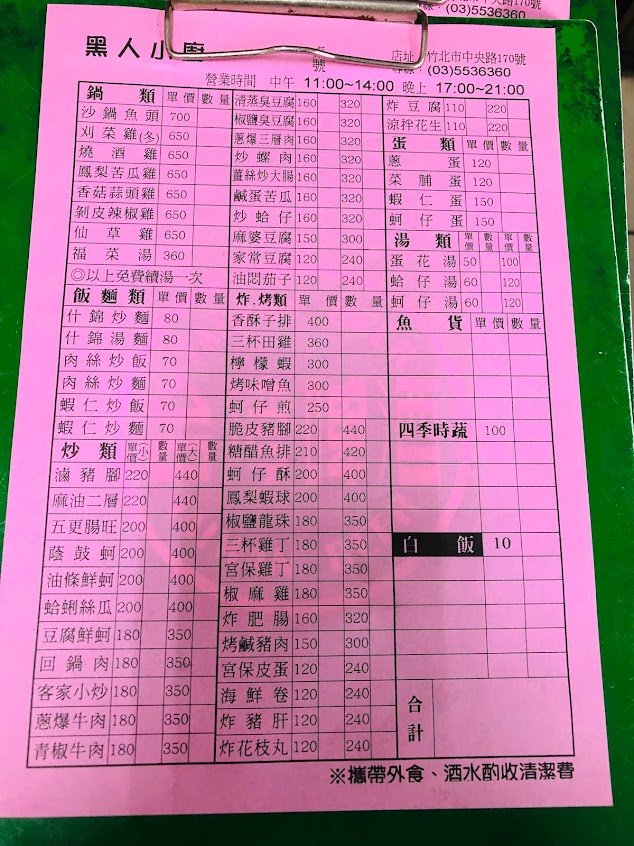 (03)5536360
黑人小廚
號
店址 竹北市中央路170號
(03)5536360
營業時間 中午 11:00~14:00 晚上 17:00~21:00
鍋類 單價 數量
沙鍋魚頭 700
刈菜雞(冬) 650
燒酒雞 650
鳳梨苦瓜雞 650
香菇蒜頭雞 650
剝皮辣椒雞 650
仙草雞 650
福菜湯 360
◎以上免費續湯一次
飯麵類 單價 數量
什錦炒麵 80
什錦湯麵 80
肉絲炒飯 70
肉絲炒麵 70
蝦仁炒飯 70
蝦仁炒麵 70
炒類 單價(小) 數量 單價(大) 數量
滷豬腳 220 440
麻油二層 220 440
五更腸旺 200 400
蔭鼓蚵 200 400
油條鮮蚵 200 400
蛤蜊絲瓜 200 400
豆腐鮮蚵 180 350
回鍋肉 180 350
客家小炒 180 350
蔥爆牛肉 180 350
青椒牛肉 180 350
清蒸臭豆腐 160 320
椒鹽臭豆腐 160 320
蔥爆三層肉 160 320
炒螺肉 160 320
薑絲炒大腸 160 320
鹹蛋苦瓜 160 320
炒蛤仔 160 320
麻婆豆腐 150 300
家常豆腐 120 240
油悶茄子 120 240
炸.烤類 單價 數量
香酥子排 400
三杯田雞 360
檸檬蝦 300
烤味噌魚 300
蚵仔煎 250
脆皮豬腳 220 440
糖醋魚排 210 420
蚵仔酥 200 400
鳳梨蝦球 200 400
椒鹽龍珠 180 350
三杯雞丁 180 350
宮保雞丁 180 350
椒麻雞 180 350
炸肥腸 160 320
烤鹹豬肉 150 300
宮保皮蛋 120 240
海鮮卷 120 240
炸豬肝 120 240
炸花枝丸 120 240
炸豆腐 110 220
涼拌花生 110 220
蛋類 單價 數量
蔥蛋 120
菜脯蛋 120
蝦仁蛋 150
蚵仔蛋 150
湯類 單價 數量 單價 數量
蛋花湯 50 100
蛤仔湯 60 120
蚵仔湯 60 120
魚貨 單價 數量
四季時蔬 100
白飯 10
合計
※攜帶外食、酒水酌收清潔費